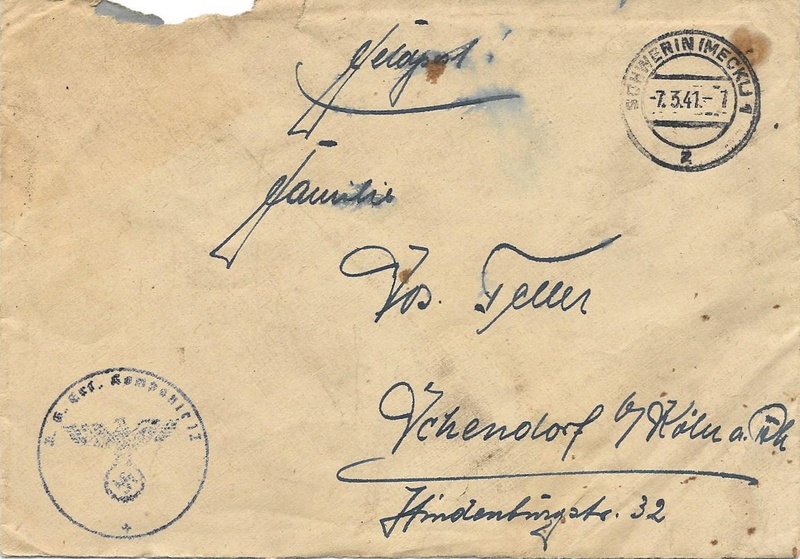 Feldpost!
SCHWERIN (MECKL) 1
-7.3.41.- 7
z
Familie
Jos. Teller
Uckendorf b/Köln a. Rh
Hindenburgstr. 32
Ers. Kompanie 12